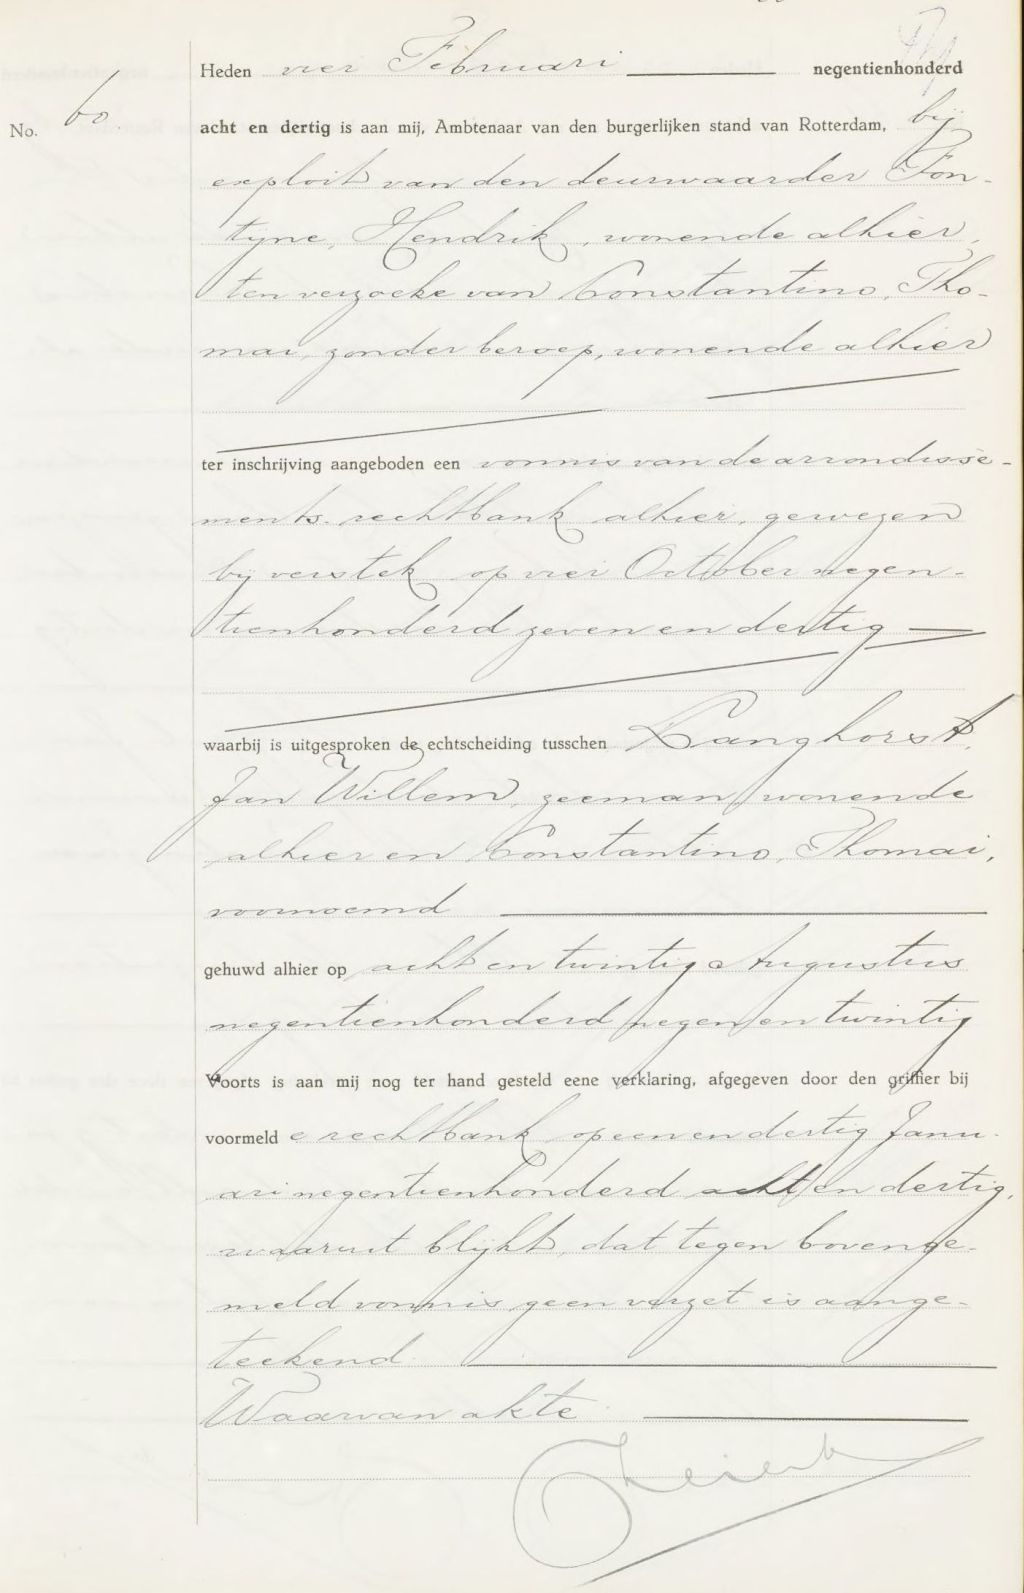 Heden vier Februari negentienhonderd
No. 60.
acht en dertig is aan mij, Ambtenaar van den burgerlijken stand van Rotterdam, bij
exploit van den deurwaarder Fon-
tyne, Hendrik, wonende alhier,
ten verzoeke van Constantino, Tho-
mai, zonder beroep, wonende alhier
ter inschrijving aangeboden een vonnis van de arrondisse-
ments-rechtbank alhier, gewezen
bij verstek op vier October negen-
tienhonderd zeven en dertig
waarbij is uitgesproken de echtscheiding tusschen Langhorst,
Jan Willem, zeeman, wonende
alhier en Constantino, Thomai,
voornoemd
gehuwd alhier op acht en twintig Augustus
negentienhonderd negen en twintig
Voorts is aan mij nog ter hand gesteld eene verklaring, afgegeven door den griffier bij
voormelde rechtbank op een en dertig Janu-
ari negentienhonderd acht en dertig,
waaruit blijkt, dat tegen bovenge-
meld vonnis geen verzet is aange-
teekend.
Waarvan akte.